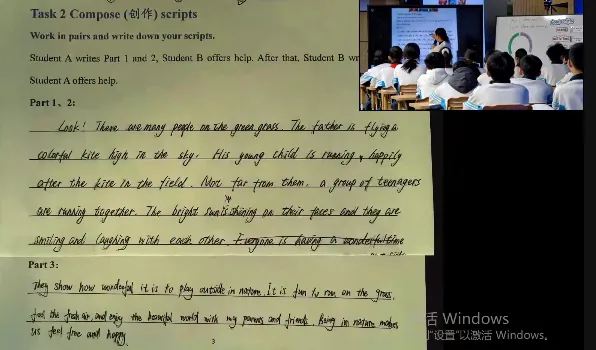 Task 2 Compose (创作) scripts
Work in pairs and write down your scripts.
Student A writes Part 1 and 2, Student B offers help. After that, Student B wr
Student A offers help.
Part 1、2:
Look! There are many people on the green grass. The father is flying a
colorful kite high in the sky. His young child is running happily
after the kite in the field. Not far from them, a group of teenagers
are running together. The bright sun is shining on their faces and they are
smiling and laughing with each other. Everyone is having a wonderful time
Part 3:
They show how wonderful it is to play outside in nature. It is fun to run on the grass,
feel the fresh air, and enjoy the beautiful world with my parents and friends. Being in nature makes
us feel free and happy.
3
活 Windows
"设置"以激活 Windows。